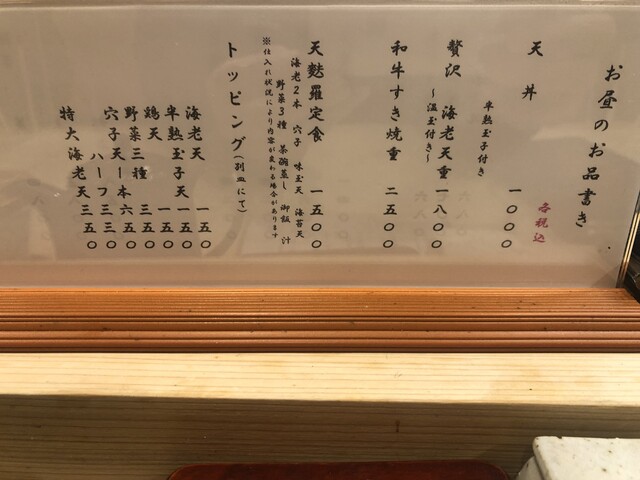 お昼のお品書き
各税込
天丼
半熟玉子付き
一〇〇〇
贅沢 海老天重
～温玉付き～
一八〇〇
和牛すき焼重
二五〇〇
天麩羅定食
一五〇〇
海老2本 穴子 味玉天 海苔天
野菜3種 茶碗蒸し 御飯 汁
※仕入れ状況により内容が変わる場合があります
トッピング(別皿にて)
海老天 一五〇
半熟玉子天 一五〇
鶏天 一五〇
野菜三種 三五〇
穴子天一本 六五〇
ハーフ 三三〇
特大海老天 三五〇